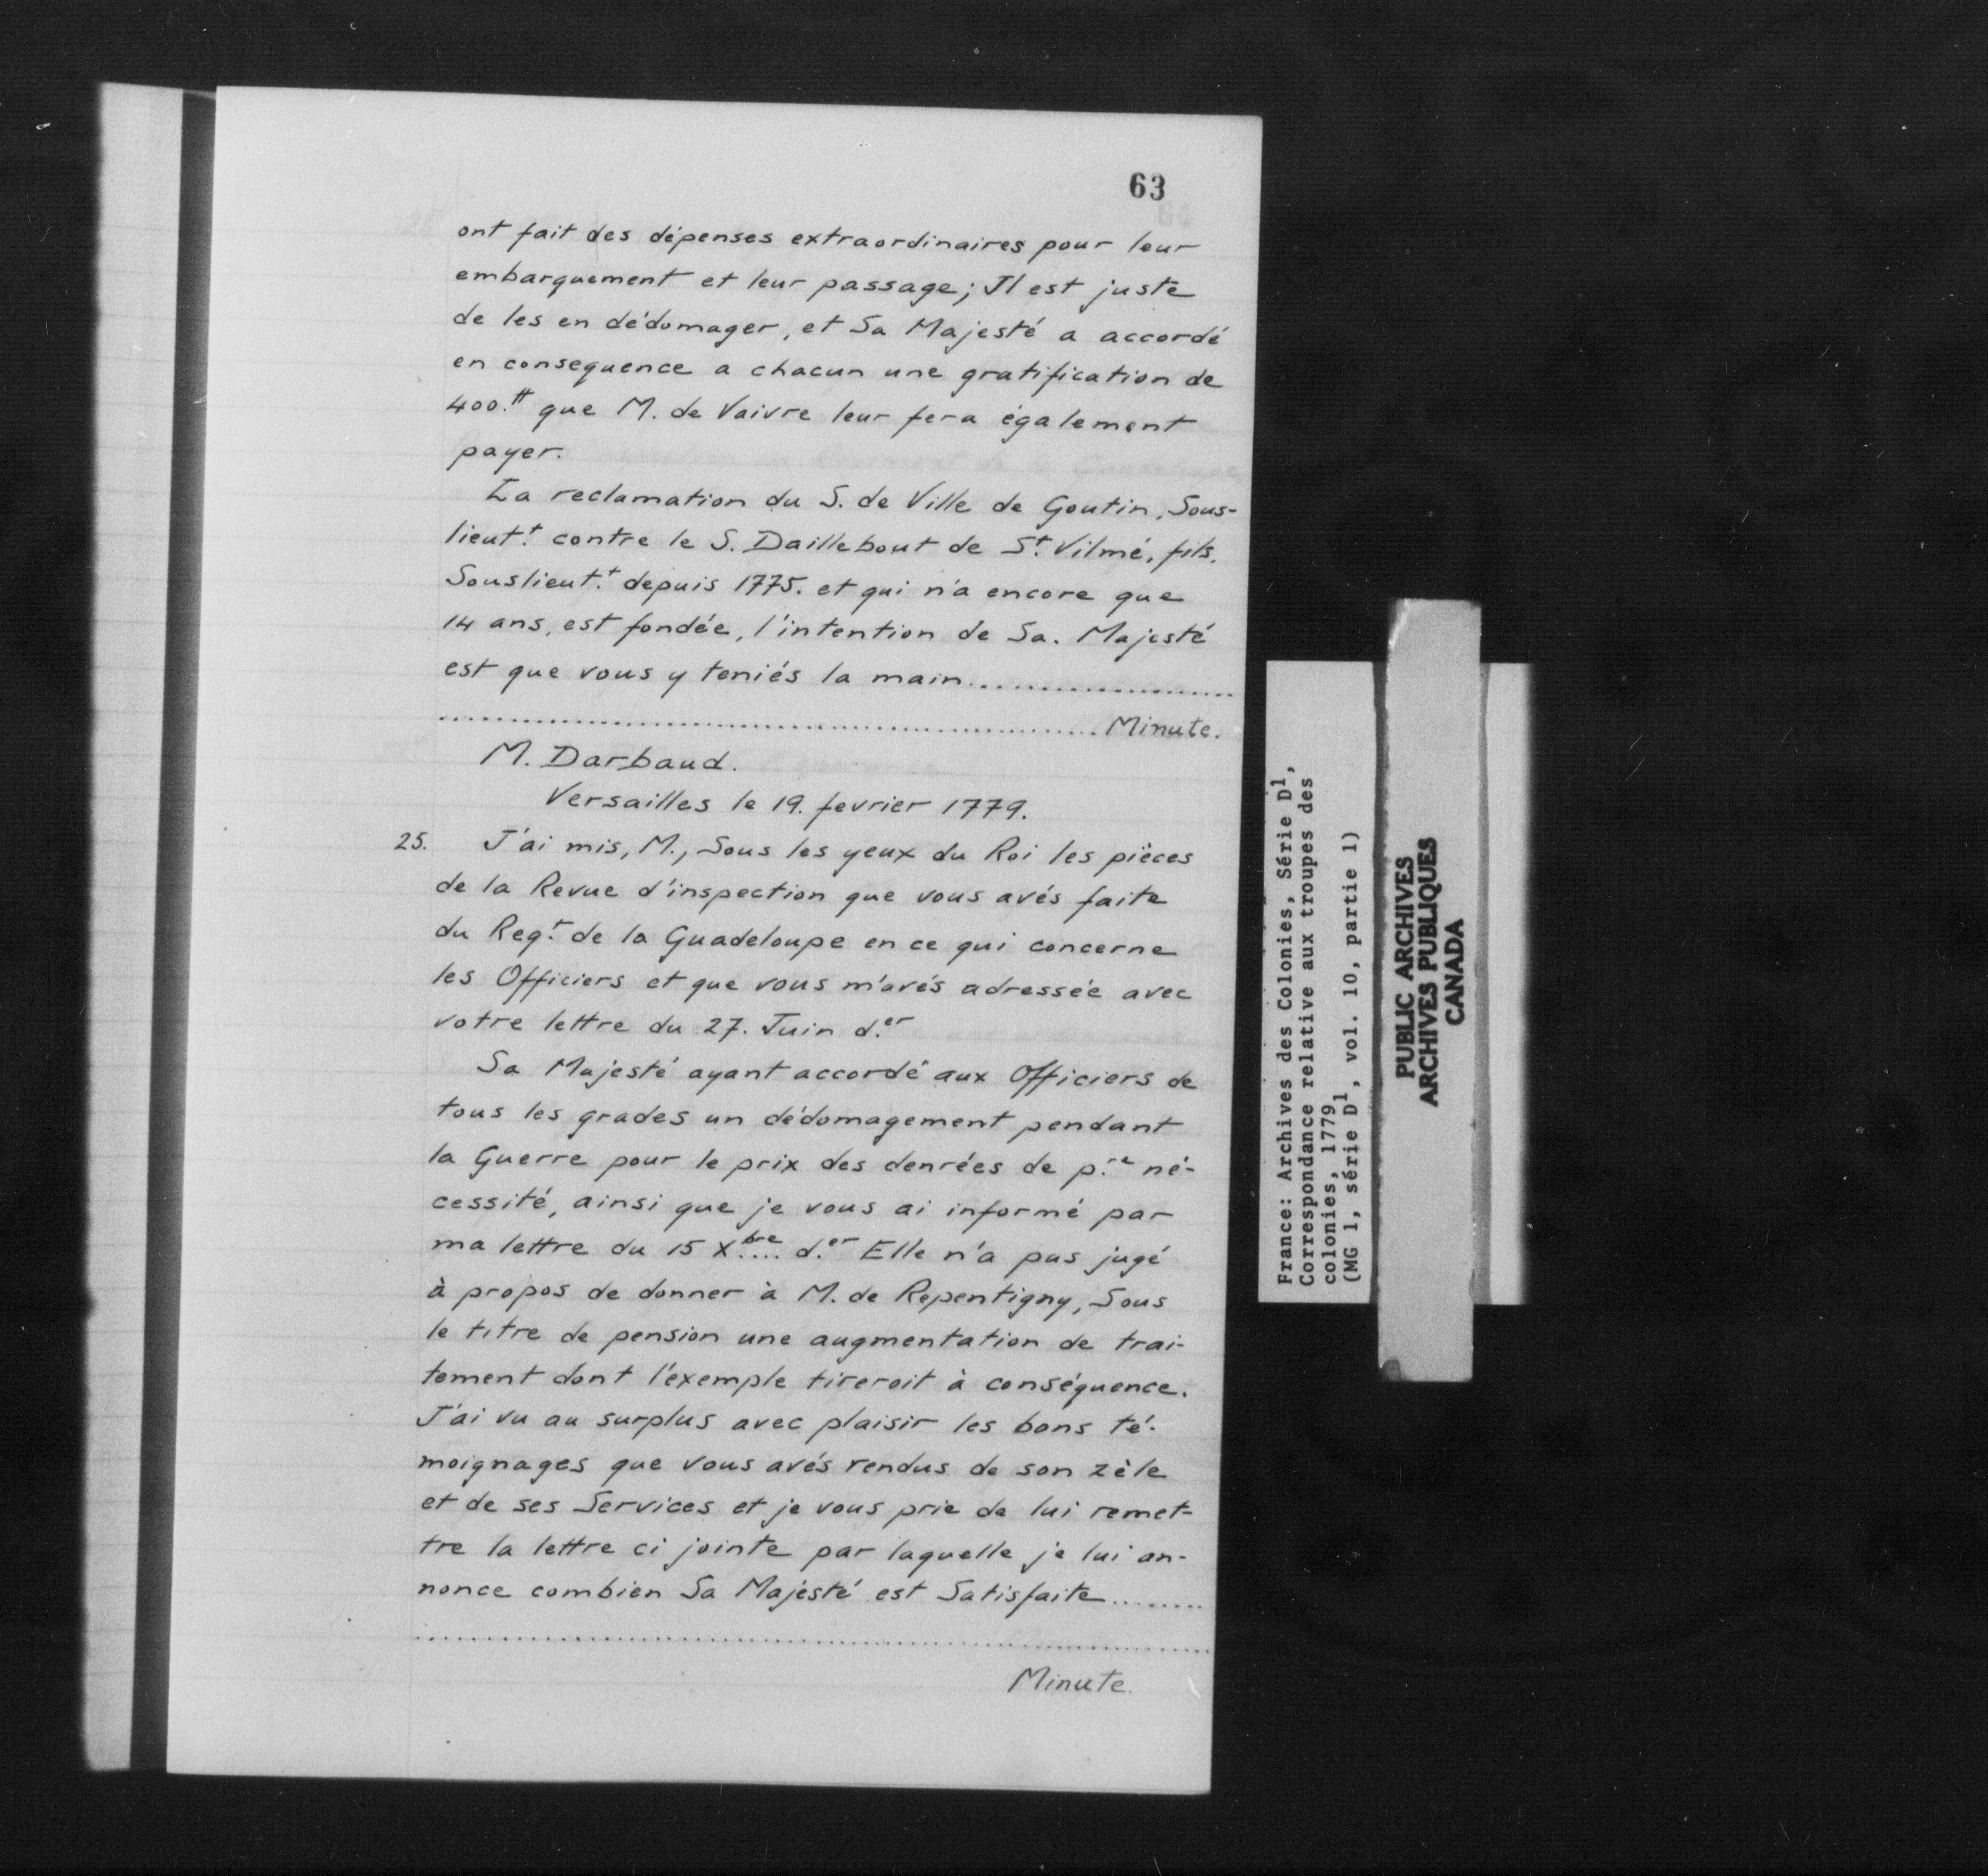 63
ont fait des dépenses extraordinaires pour leur
embarquement et leur passage; Il est juste
de les en dédomager, et Sa Majesté a accordé
en consequence a chacun une gratification de
400.tt que M. de Vaivre leur fera également
payer.
La reclamation du S. de Ville de Goutin, Sous-
lieut.t contre le S. Daillebout de St. Vilmé, fils.
Souslieut.t depuis 1775. et qui n'a encore que
14 ans, est fondée, l'intention de Sa. Majesté
est que vous y teniés la main....................
.................................................. Minute.
M. Darbaud.
Versailles le 19. fevrier 1779.
25. J'ai mis, M., Sous les yeux du Roi les pièces
de la Revue d'inspection que vous avés faite
du Reg.t de la Guadeloupe en ce qui concerne
les Officiers et que vous m'avés adressée avec
votre lettre du 27. Juin d.er
Sa Majesté ayant accordé aux Officiers de
tous les grades un dédomagement pendant
la Guerre pour le prix des denrées de p.re né-
cessité, ainsi que je vous ai informé par
ma lettre du 15 Xbre.... d.er Elle n'a pas jugé
à propos de donner à M. de Repentigny, Sous
le titre de pension une augmentation de trai-
tement dont l'exemple tireroit à conséquence.
J'ai vu au surplus avec plaisir les bons té-
moignages que vous avés rendus de son zèle
et de ses Services et je vous prie de lui remet-
tre la lettre ci jointe par laquelle je lui an-
nonce combien Sa Majesté est Satisfaite.........
............................................................
Minute.
France: Archives des Colonies, Série D1,
Correspondance relative aux troupes des
colonies, 1779
(MG 1, série D1, vol. 10, partie 1)
PUBLIC ARCHIVES
ARCHIVES PUBLIQUES
CANADA